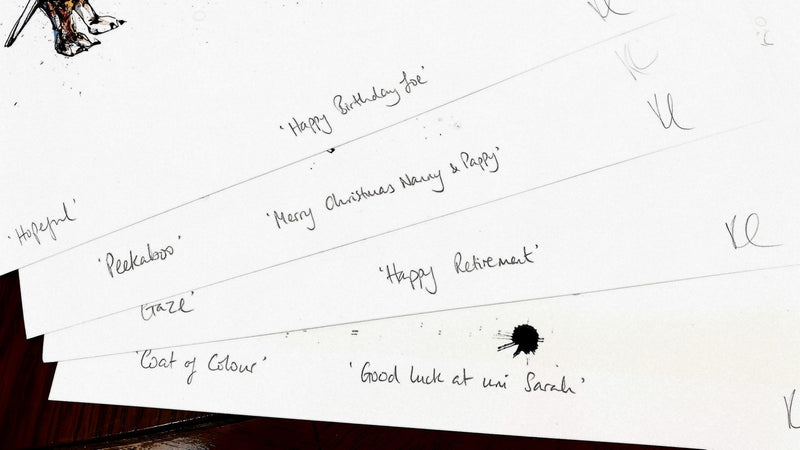 'Hopeful'
'Happy Birthday Joe'
'Peekaboo'
'Merry Christmas Nanny & Pappy'
KC
Gaze'
'Happy Retirement'
KC
'Coat of Colour'
'Good luck at uni Sarah'